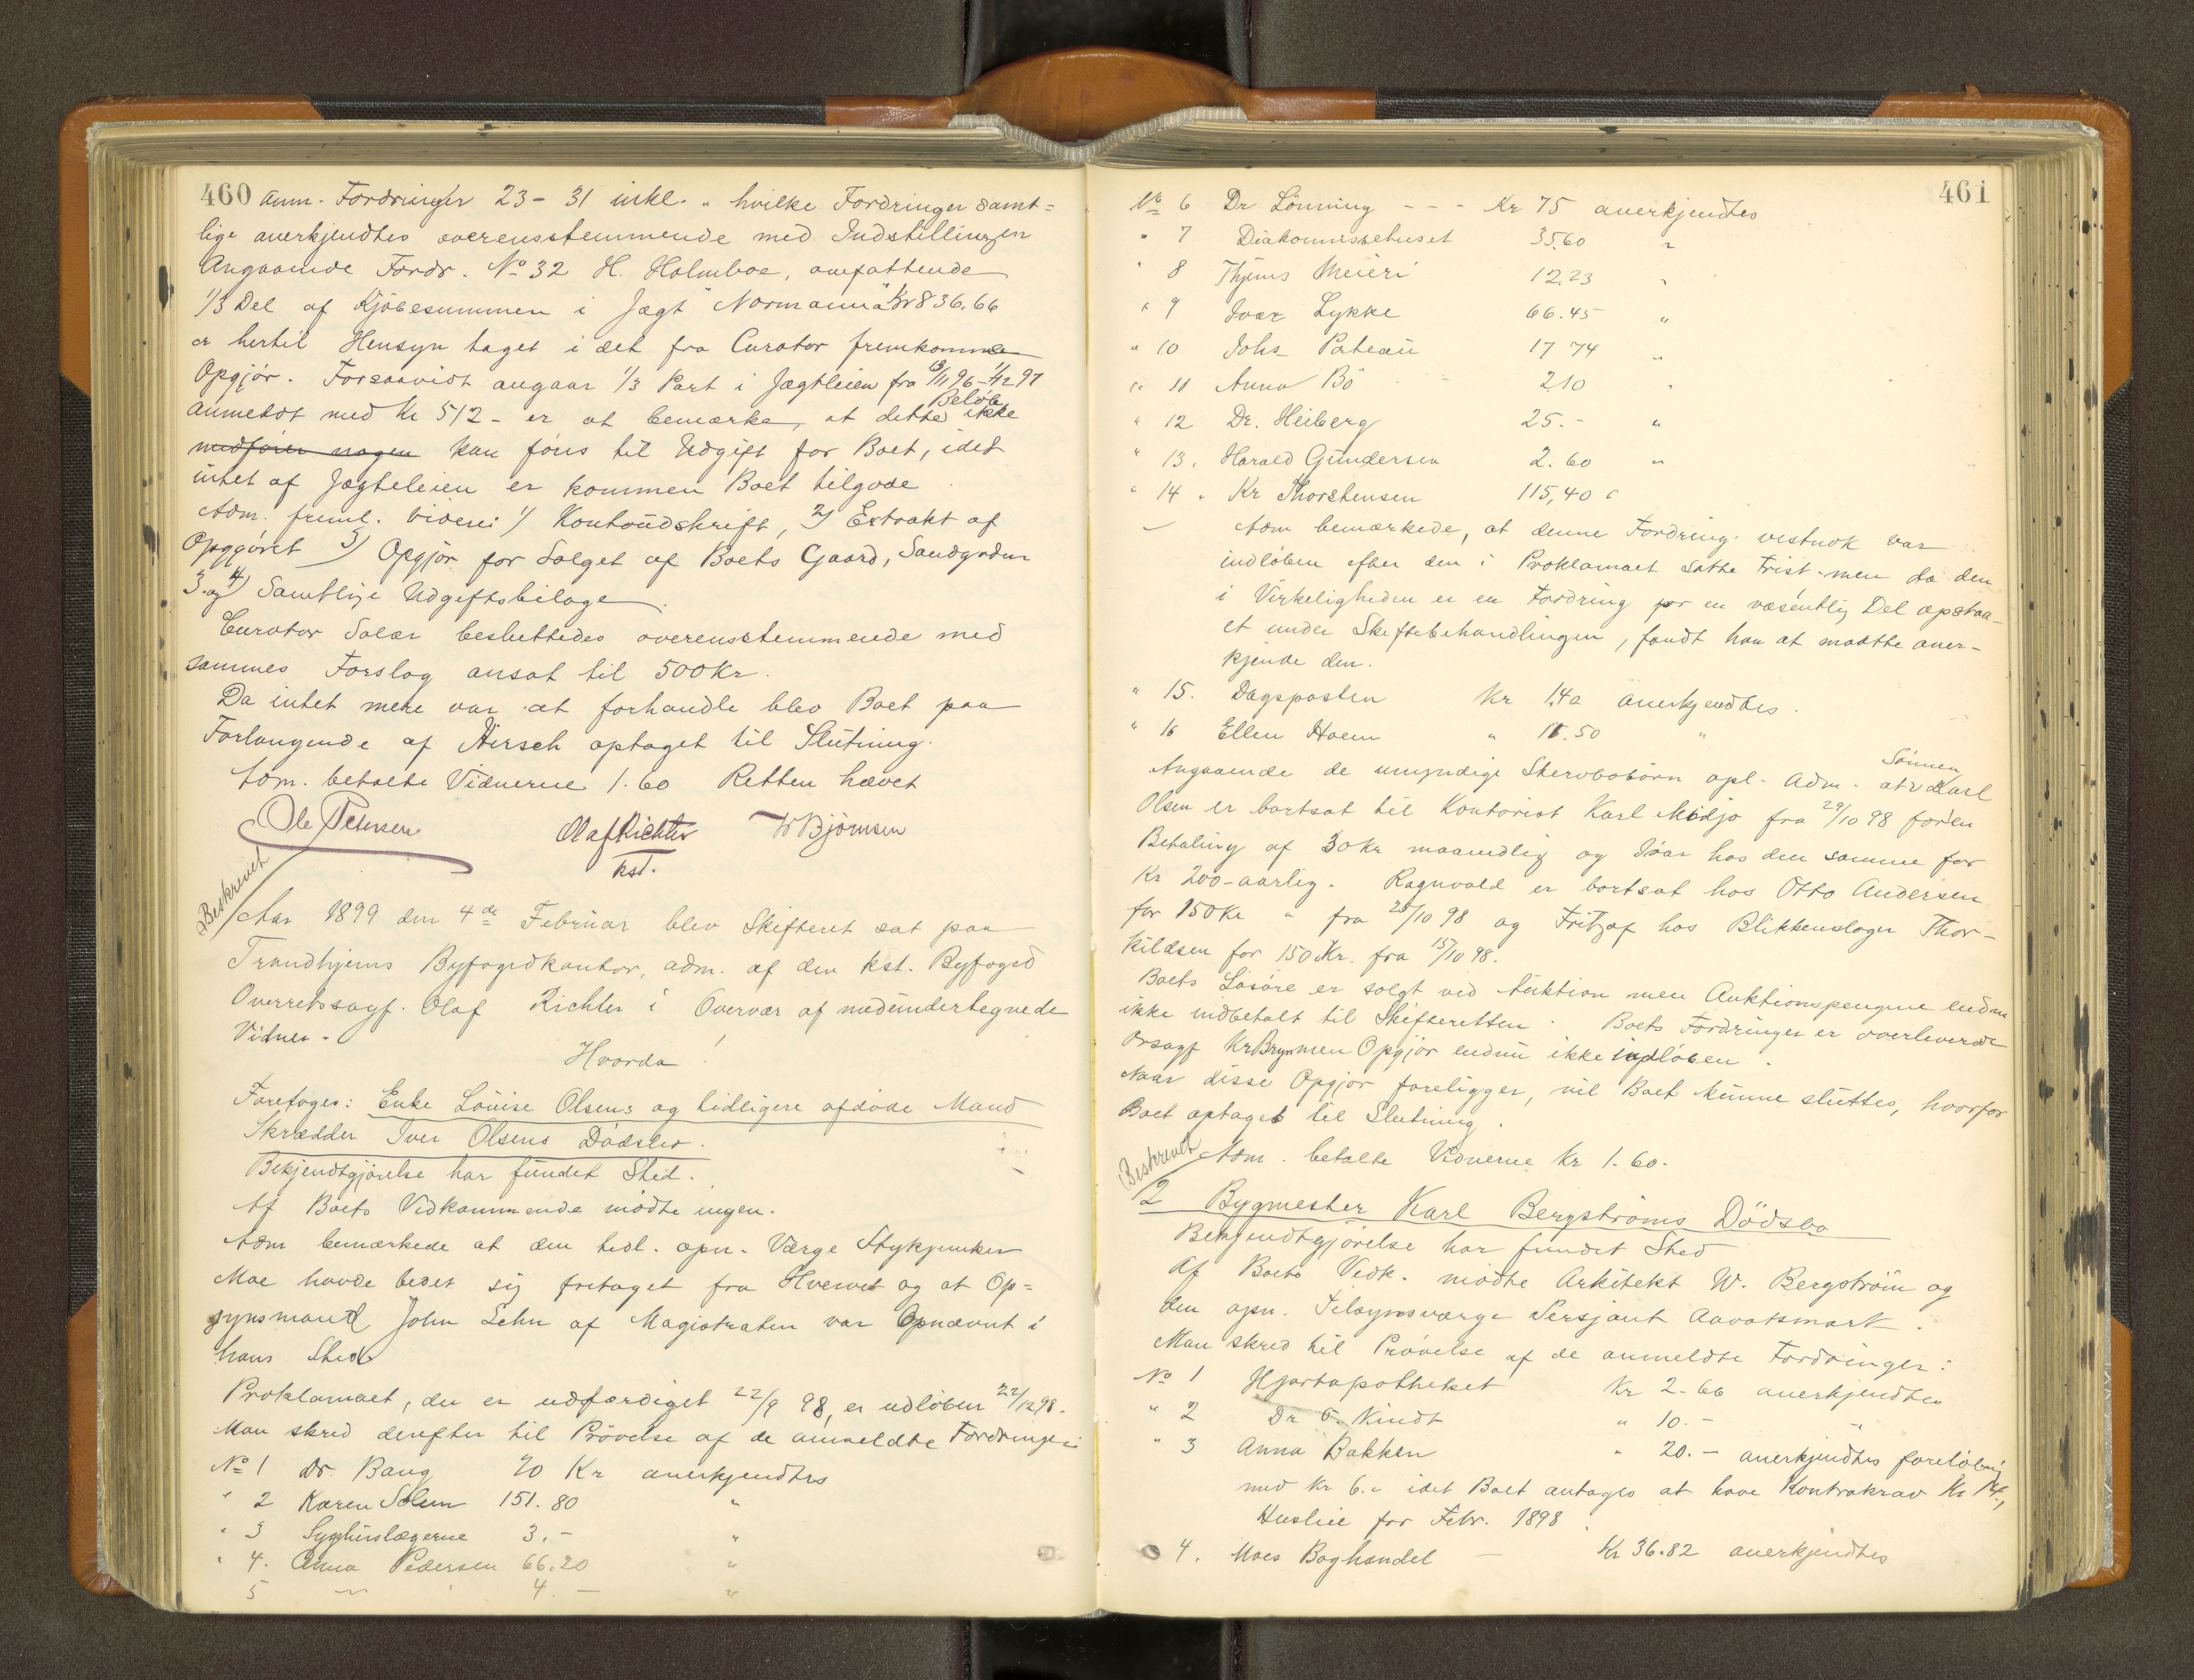 460 Anm. Fordringer 23 - 31 inkl. " hvilke Fordringer samt=
lige anerkjendtes overensstemmende med Indstillingen
Angaaende Fordr. No 32 H. Holmboe, omfattende
1/3 Del af Kjöbesummen i Jagt "Normanna" Kr 836.66
er hertil Hensyn taget i det fra Curator fremkomme
Opgjör. Forsaavidt angaar 1/3 Part i Jagtleien fra 13/11 96 - 1/12 97
anmeldt med Kr 512 - er at bemærke, at dette Beløb ikke
medfører nogen kan føres til Udgift for Boet, idet
intet af Jagteleien er kommen Boet tilgode.
Adm. freml. videre: 1) Kontoudskrift, 2) Extrakt af
Opgjöret 3) Opgjör for Salget af Boets Gaard, Sandgaden
3 og 4) Samtlige Udgiftsbilage.
Curator Salær besluttedes overensstemmende med
sammes Forslag ansat til 500 Kr.
Da intet mere var at forhandle blev Boet paa
Forlangende af Hirsch optaget til Slutning.
Adm. betalte Vidnerne 1.60 Retten hævet
Ole Petersen Olaf Richter W Björnsen
kst.
Beskrevet
Aar 1899 den 4de Februar blev Skifteret sat paa
Trondhjems Byfogedkontor, adm. af den kst. Byfoged
Overretssagf. Olaf Richter i Overvær af medundertegnede
Vidner.
Hvorda!
Foretoges: Enke Louise Olsens og tidligere afdöde Mand
Skrædder Iver Olsens Dödsbo.
Bekjendtgjörelse har fundet Sted.
Af Boets Vidkommende mödte ingen.
Adm bemærkede at den tidl. opn. Værge Stykjunker
Moe havde bedet sig fritaget fra Hvervet og at Op=
synsmand John Lehn af Magistraten var Opnævnt i
hans Sted
Proklamaet, der er udfærdiget 22/9 98, er udlöben 22/12 98.
Man skred derefter til Prövelse af de anmeldte Fordringer:
No 1 Dr. Bang 70 Kr anerkjendtes
" 2 Karen Solem 151.80 "
" 3 Sygehuslægerne 3.- "
" 4. Anna Pedersen 66.20 "
5 " 4. - "
461
No 6 Dr Lönning - - - Kr 75 anerkjendtes
" 7 Diakonnissehuset 35.60 "
" 8 Thjems Meieri 12.23 "
" 9 Ivar Lykke 66.45 "
" 10 Johs Pateau 17 74 "
" 11 Anna Bö - - 2.10 "
" 12 Dr. Heiberg 25.- "
" 13. Harald Gundersen 2.60 "
" 14. Kr Thorstensen 115,40 "
Adm bemærkede, at denne Fordring vistnok var
indlöben efter den i Proklamaet satte Frist - men da den
i Virkeligheden er en Fordring for en væsentlig Del opstaa-
et under Skiftebehandlingen, fandt han at maatte aner-
kjende den.
" 15. Dagsposten Kr 1,40 anerkjendtes.
" 16 Ellen Hoem " 11.50 "
Angaaende de umyndige Stervbobörn opl. Adm. at Sönnen Karl
Olsen er bortsat til Kontorist Karl Midjo fra 29/10 98 for en
Betaling af 30 Kr maanedlig og Ivar hos den samme for
Kr 200 - aarlig. Ragnvald er bortsat hos Otto Andersen
for 150 Kr " fra 28/10 98 og Fritjof hos Blikkenslager Thor-
kildsen for 150 Kr. fra 15/10 98.
Boets Lösöre er solgt ved Auktion men Auktionspengene endnu
ikke indbetalt til Skifteretten. Boets Fordringer er overleverede
Orsagf Kr Brynmen Opgjör endnu ikke indlöben.
Naar disse Opgjör foreligger, vil Boet kunne sluttes, hvorfor
Boet optages til Slutning.
Adm. betalte Vidnerne Kr 1.60.
Beskrevet
2 Bygmester Karl Bergströms Dödsbo
Bekjendtgjörelse har fundet Sted
Af Boets Vedk. mödte Arkitekt W. Bergström og
den opn. Tilsynsværge Sersjant Aavatsmark.
Man skred til Prövelse af de anmeldte Fordringer:
No 1 Hjortapotheket Kr 2.66 anerkjendtes
" 2 Dr C. Kindt " 10.- "
" 3 Anna Bakken " 20.- anerkjendtes forelöbig
med Kr 6.- idet Boet antages at have Kontrakrav Kr 14,
Husleie for Febr. 1898.
4. Moes Boghandel - Kr 36.82 anerkjendtes